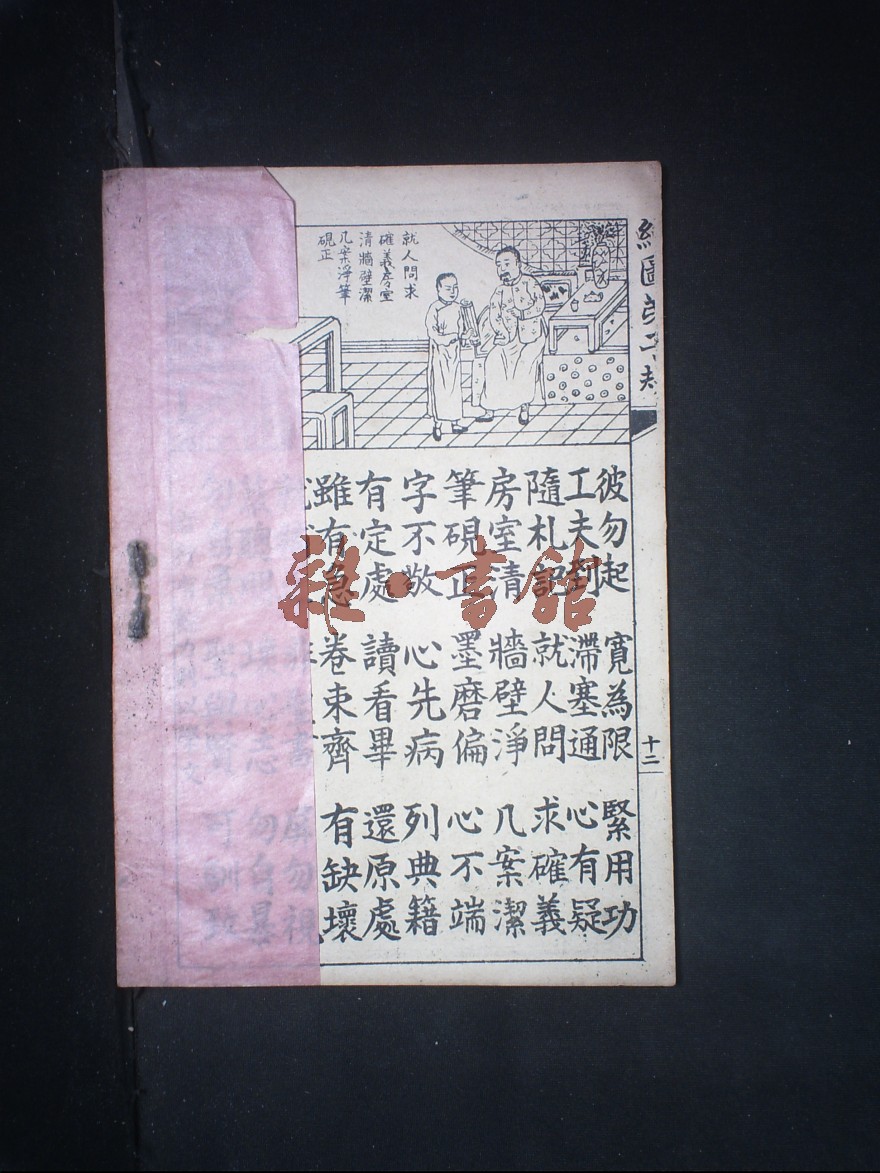 繪圖弟子規
就人問求
確義房室
清牆壁潔
几案淨筆
硯正
彼勿起 寬為限 緊用功
工夫到 滯塞通 心有疑
隨札記 就人問 求確義
房室清 牆壁淨 几案潔
筆硯正 墨磨偏 心不端
字不敬 心先病 列典籍
有定處 讀看畢 還原處
雖有急 卷束齊 有缺壞
非聖書 屏勿視
壞心志 勿自暴
可馴致
十二
雜·書館